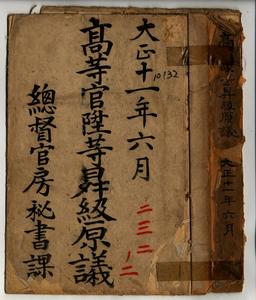 大正十一年六月
10132
高等官陞等昇級原議
二三二
ノ二
總督官房秘書課
高等官陞等昇級原議
大正十一年六月